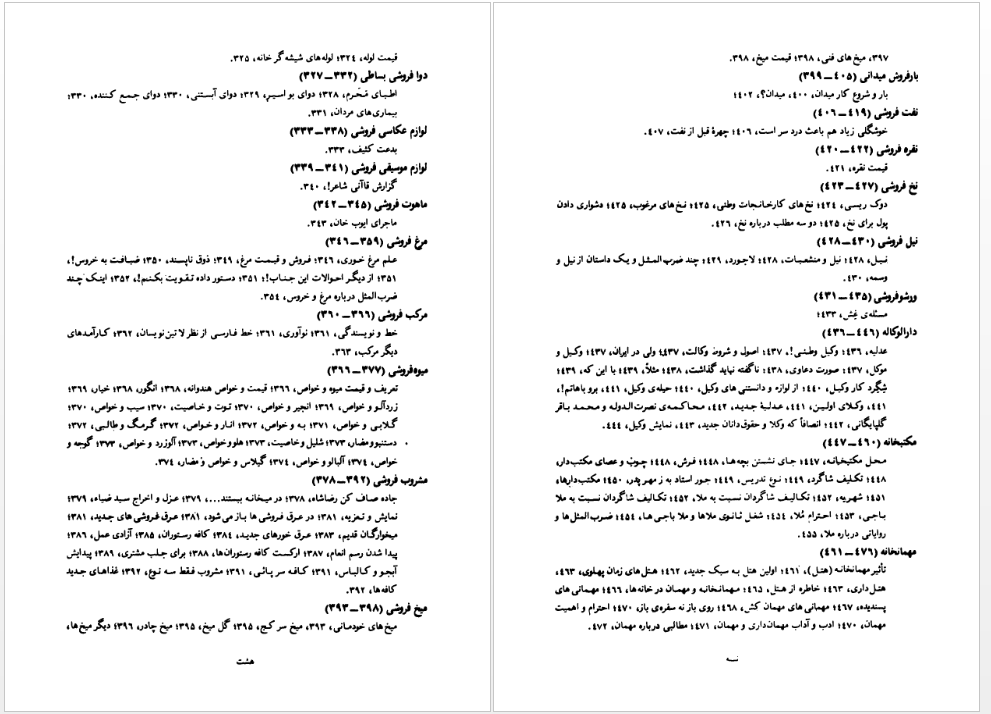 قیمت لوله، ۳۲۴؛ لوله‌های شیشه‌گر خانه، ۳۲۵.
دوا فروشی بساطی (۳۳۲ــ۳۲۷)
اطبای محرم، ۳۲۸؛ دوای بواسیر، ۳۲۹؛ دوای آبستنی، ۳۳۰؛ دوای جمع کننده، ۳۳۰؛
بیماری‌های مردان، ۳۳۱.
لوازم عکاسی فروشی (۳۳۸ــ۳۳۳)
بدعت کثیف، ۳۳۳.
لوازم موسیقی فروشی (۳۴۱ــ۳۳۹)
گزارش قاآنی شاعر!، ۳۴۰.
ماهوت فروشی (۳۴۵ــ۳۴۲)
ماجرای ایوب خان، ۳۴۳.
مرغ فروشی (۳۵۹ــ۳۴۶)
علم مرغ خوری، ۳۴۶؛ فروش و قیمت مرغ، ۳۴۹؛ ذوق ناپسند، ۳۵۰؛ ضیافت به خروس!،
۳۵۱؛ از دیگر احوالات این جناب!؛ ۳۵۱؛ دستور داده تقویت بکنم!، ۳۵۲؛ اینک چند
ضرب‌المثل درباره مرغ و خروس، ۳۵۴.
مرکب فروشی (۳۶۶ــ۳۶۰)
خط و نویسندگی، ۳۶۱؛ نوآوری، ۳۶۱؛ خط فارسی از نظر لاتین‌نویسان، ۳۶۲؛ کارآمدهای
دیگر مرکب، ۳۶۳.
میوه‌فروشی (۳۷۷ــ۳۶۶)
تعریف و قیمت میوه و خواص، ۳۶۶؛ قیمت و خواص هندوانه، ۳۶۸؛ انگور، ۳۶۸؛ خیار، ۳۶۹؛
زردآلو و خواص، ۳۶۹؛ انجیر و خواص، ۳۷۰؛ توت و خاصیت، ۳۷۰؛ سیب و خواص، ۳۷۰؛
گلابی و خواص، ۳۷۱؛ به و خواص، ۳۷۲؛ انار و خواص، ۳۷۲؛ گرمک و طالبی، ۳۷۲؛
دستنبو و مضار، ۳۷۳؛ شلیل و خاصیت، ۳۷۳؛ هلو و خواص، ۳۷۳؛ آلوزرد و خواص، ۳۷۳؛ گوجه و
خواص، ۳۷۴؛ آلبالو و خواص، ۳۷۴؛ گیلاس و خواص و مضار، ۳۷۴.
مشروب فروشی (۳۹۲ــ۳۷۸)
جاده صاف کن رضاشاه، ۳۷۸؛ در میخانه ببستند...، ۳۷۹؛ عزل و اخراج سید ضیاء، ۳۷۹؛
نمایش و تعزیه، ۳۸۱؛ در عرق فروشی ها باز می‌شود، ۳۸۱؛ عرق فروشی های جدید، ۳۸۱؛
میخوارگان قدیم، ۳۸۳؛ عرق خورهای جدید، ۳۸۴؛ کافه رستوران، ۳۸۵؛ آزادی عمل، ۳۸۶؛
پیدا شدن رسم انعام، ۳۸۷؛ ارکست کافه رستوران‌ها، ۳۸۸؛ برای جلب مشتری، ۳۸۹؛ پیدایش
آبجو و کالباس، ۳۹۱؛ کافه سرپائی، ۳۹۱؛ مشروب فقط سه نوع، ۳۹۲؛ غذاهای جدید
کافه‌ها، ۳۹۲.
میخ فروشی (۳۹۸ــ۳۹۳)
میخ های خودمانی، ۳۹۳، میخ سر کج، ۳۹۵؛ گل میخ، ۳۹۵؛ میخ چادر، ۳۹۶؛ دیگر میخ‌ها،
هشت
۳۹۷، میخ های فنی، ۳۹۸؛ قیمت میخ، ۳۹۸.
بارفروش میدانی (۴۰۵ــ۳۹۹)
بار و شروع کار میدان، ۴۰۰، میدان؟، ۴۰۲؛
نفت فروشی (۴۱۹ــ۴۰۶)
خوشگلی زیاد هم باعث درد سر است، ۴۰۶؛ چهرهٔ قبل از نفت، ۴۰۷.
نقره فروشی (۴۲۲ــ۴۲۰)
قیمت نقره، ۴۲۱.
نخ فروشی (۴۲۷ــ۴۲۳)
دوک ریسی، ۴۲۴؛ نخ‌های کارخانجات وطنی، ۴۲۵؛ نخ‌های مرغوب، ۴۲۵؛ دشواری دادن
پول برای نخ، ۴۲۵؛ دو سه مطلب درباره نخ، ۴۲۶.
نیل فروشی (۴۳۰ــ۴۲۸)
نیل، ۴۲۸؛ نیل و منشعبات، ۴۲۸؛ لاجورد، ۴۲۹؛ چند ضرب‌المثل و یک داستان از نیل و
وسمه، ۴۳۰.
ورشوفروشی (۴۳۵ــ۴۳۱)
مسئله‌ی غش، ۴۳۳؛
دارالوکاله (۴۴۶ــ۴۳۶)
عدلیه، ۴۳۶؛ وکیل وطنی!، ۴۳۷؛ اصول و شروط وکالت، ۴۳۷؛ ولی در ایران، ۴۳۷؛ وکیل و
موکل، ۴۳۷؛ صورت دعاوی، ۴۳۸؛ ناگفته نباید گذاشت، ۴۳۸؛ مثلاً، ۴۳۹؛ با این که، ۴۳۹؛
شگِرد کار وکیل، ۴۴۰؛ از لوازم و دانستنی های وکیل، ۴۴۰؛ حیله‌ی وکیل، ۴۴۱، برو باهاتم!،
۴۴۱، وکلای اولین، ۴۴۱، عدلیهٔ جدید، ۴۴۲، محاکمه‌ی نصرت‌الدوله و محمد باقر
گلپایگانی، ۴۴۲؛ انصافاً که وکلا و حقوق‌دانان جدید، ۴۴۳، نمایش وکیل، ۴۴۴.
مکتبخانه (۴۶۰ــ۴۴۷)
محل مکتبخانه، ۴۴۷؛ جای نشستن بچه‌ها، ۴۴۸؛ فرش، ۴۴۸؛ چوب و عصای مکتب‌دار،
۴۴۸؛ تکلیف شاگرد، ۴۴۹؛ نوع تدریس، ۴۴۹؛ جور استاد به ز مهر پدر، ۴۵۰؛ مکتب‌دارها،
۴۵۱؛ شهریه، ۴۵۲؛ تکالیف شاگردان نسبت به ملا، ۴۵۲؛ تکالیف شاگردان نسبت به ملا
باجی، ۴۵۳؛ احترام مُلا، ۴۵۴؛ شغل ثانوی ملاها و ملا باجی‌ها، ۴۵۴؛ ضرب‌المثل‌ها و
روایاتی درباره ملا، ۴۵۵.
مهمانخانه (۴۷۶ــ۴۶۱)
تأثیر مهمانخانه (هتل)، ۴۶۱؛ اولین هتل به سبک جدید، ۴۶۲؛ هتل‌های زمان پهلوی، ۴۶۳،
هتل‌داری، ۴۶۳؛ خاطره از هتل، ۴۶۵؛ مهمانخانه و مهمان در خانه‌ها، ۴۶۶؛ مهمانی های
پسندیده، ۴۶۷؛ مهمانی های مهمان کش، ۴۶۸؛ روی باز نه سفره‌ی باز، ۴۷۰؛ احترام و اهمیت
مهمان، ۴۷۰؛ ادب و آداب مهمان‌داری و مهمان، ۴۷۱؛ مطالبی درباره مهمان، ۴۷۲.
نـه